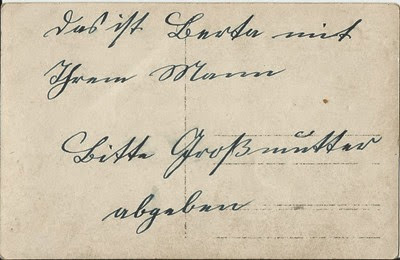 das ist Berta mit
Ihrem Mann
Bitte Großmutter
abgeben